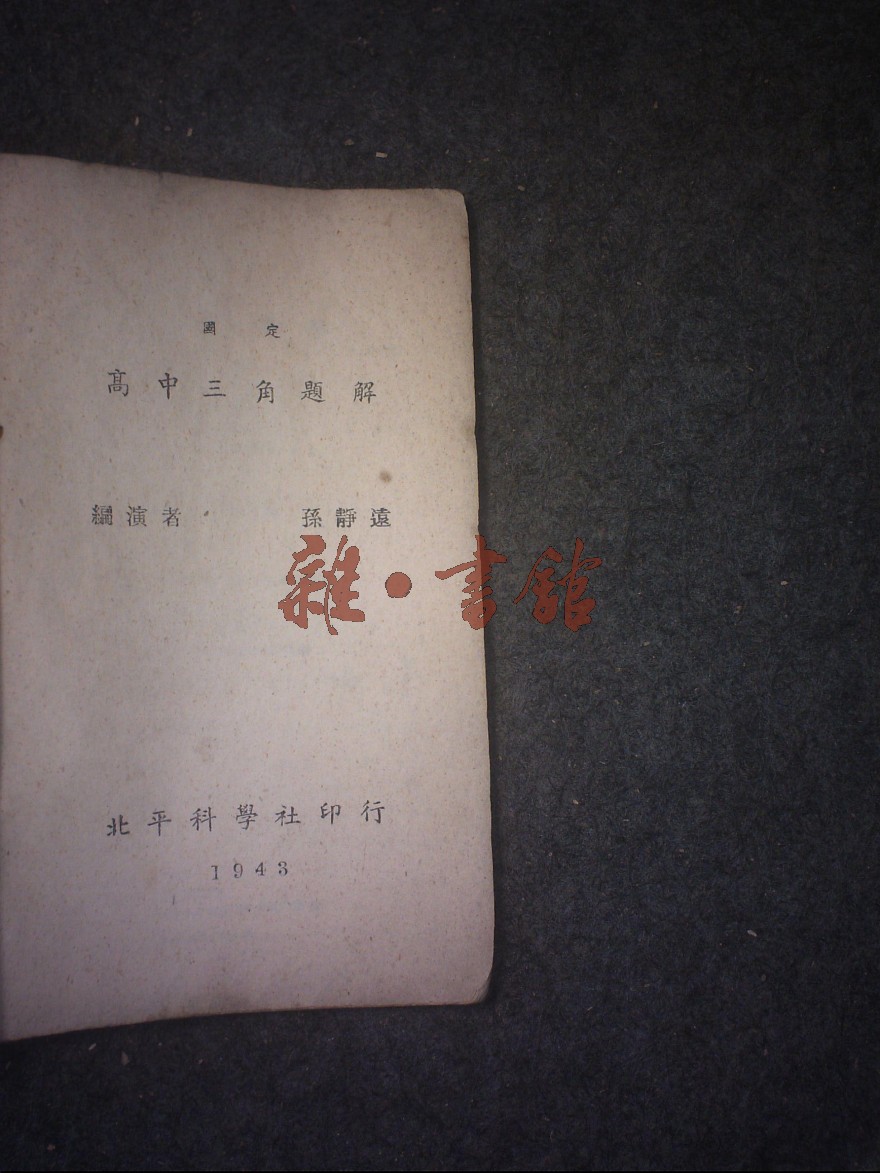 國定
高中三角題解
編演者 孫靜遠
雜·書館
北平科學社印行
1943